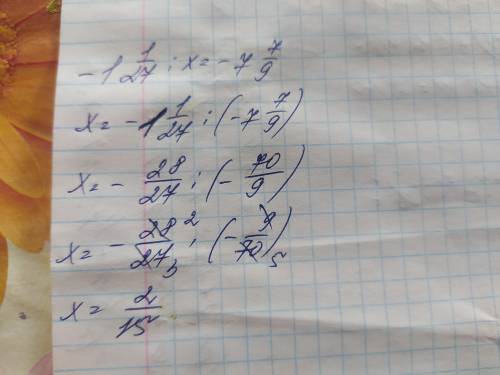 -1 1/27 : x = -7 7/9
x = -1 1/27 : (-7 7/9)
x = - 28/27 : (- 70/9)
x = - 28 2/27 3 : (- 9/70 5)
x = 2/15